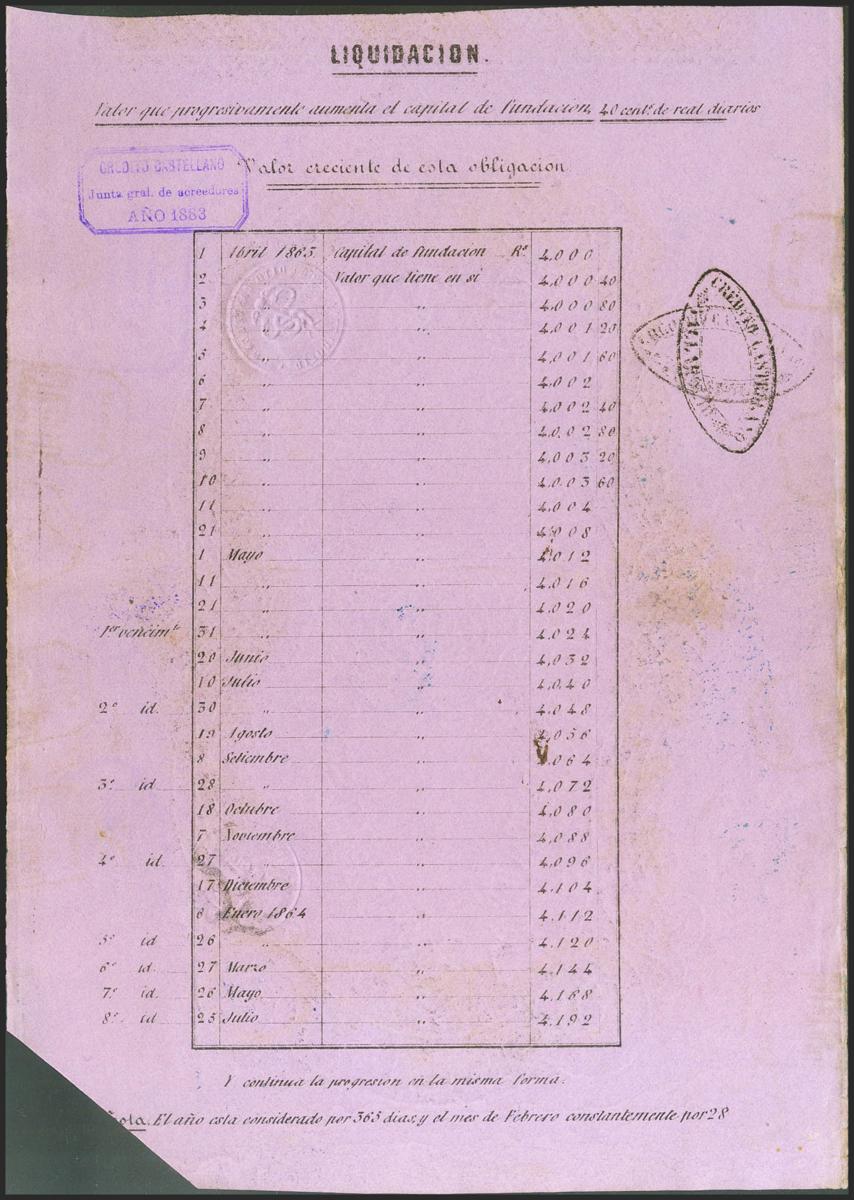 LIQUIDACION.
Valor que progresivamente aumenta el capital de fundacion, 40 centˢ de real diarios
CREDITO CASTELLANO
Junta gral. de acreedores
AÑO 1883
Valor creciente de esta obligacion
1 Abril 1863 Capital de fundacion Rˢ 4.000
2 Valor que tiene en si 4.000 40
3 " " 4.000 80
4 " " 4.001 20
5 " " 4.001 60
6 " " 4.002
7 " " 4.002 40
8 " " 4.002 80
9 " " 4.003 20
10 " " 4.003 60
11 " " 4.004
21 " " 4.008
1 Mayo " 4.012
11 " " 4.016
21 " " 4.020
1ᵉʳ vencimᵗᵒ 31 " " 4.024
20 Junio " 4.032
10 Julio " 4.040
2º id. 30 " " 4.048
19 Agosto " 4.056
8 Setiembre " 4.064
3º id 28 " " 4.072
18 Octubre " 4.080
7 Noviembre " 4.088
4º id. 27 " " 4.096
17 Diciembre " 4.104
6 Enero 1864 " 4.112
5º id 26 " " 4.120
6º id. 27 Marzo " 4.144
7º id. 26 Mayo " 4.168
8º id 25 Julio " 4.192
CRÉDITO CASTELLANO
Y continua la progresion en la misma forma.
Nota. El año esta considerado por 365 dias, y el mes de Febrero constantemente por 28